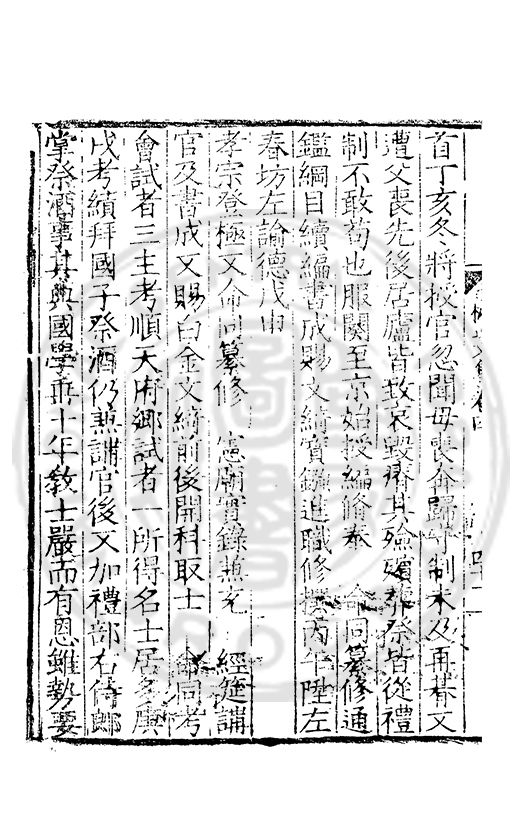 首丁亥冬將授官忽聞母喪奔歸守制未幾再朞又
遭父喪先後居廬皆致哀毀瘠其殮殯葬祭皆從禮
制不敢苟也服闋至京始授編脩奉 命同纂修通
鑑綱目續編書成賜文綺寶鏹進職修撰丙午陞左
春坊左諭德戊申
孝宗登極又命同纂修 憲廟實錄兼充 經筵講
官及書成又賜白金文綺前後開科取士 命同考
會試者三主考順天府鄉試者一所得名士居多庚
戌考績拜國子祭酒仍兼講官後又加禮部右侍郎
掌祭酒事其典國學垂十年教士嚴而有恩雖勢要